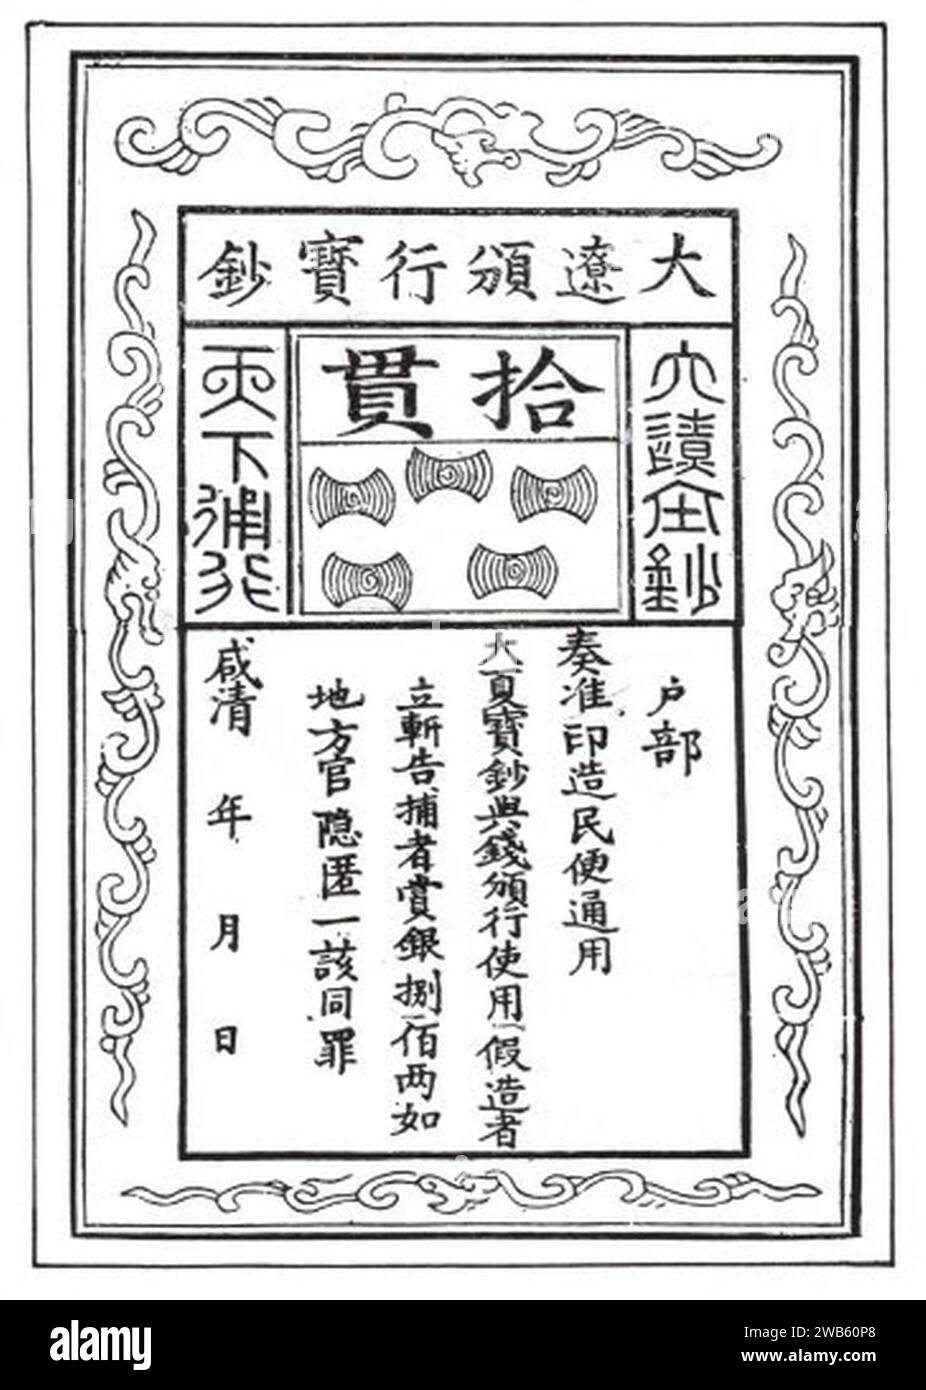 大遼頒行寶鈔
拾貫
大
全鈔
天下通行
户部
奏准印造民便通用
大夏寶鈔與錢頒行使用假造者
立斬告捕者賞銀捌佰两如
地方官隐匿一該同罪
咸清年月日
alamy
Image ID: 2WB60P8
www.alamy.com